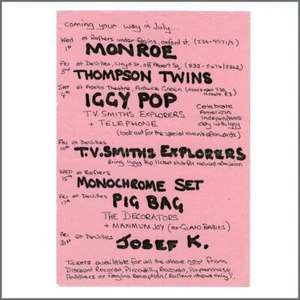 coming your way in July...
Wed 1st at Rafters under Fagins, Oxford st, (236-9971/2)
MONROE
Fri 3rd at DeVilles, Lloyd St, off Albert Sq.
THOMPSON TWINS
Sat 4th at Apollo Theatre, Ardwick Green
IGGY POP
T.V. SMITHS EXPLORERS
+ TELEPHONE
Celebrate American Independence day with iggy
(look out for the special events afterwards)
Fri at DeVilles
T.V. SMITHS EXPLORERS
bring iggy pop ticket stubs for reduced admission
Wed 15th at Rafters
MONOCHROME SET
Fri 17th at DeVilles
PIG BAG
THE DECORATORS
+ MANMUM JOY (ex-GLAXO BABIES)
Fri 31st at DeVilles
JOSEF K.
Tickets available for all the above now from
Discount Records, Piccadilly Records, Paperchase